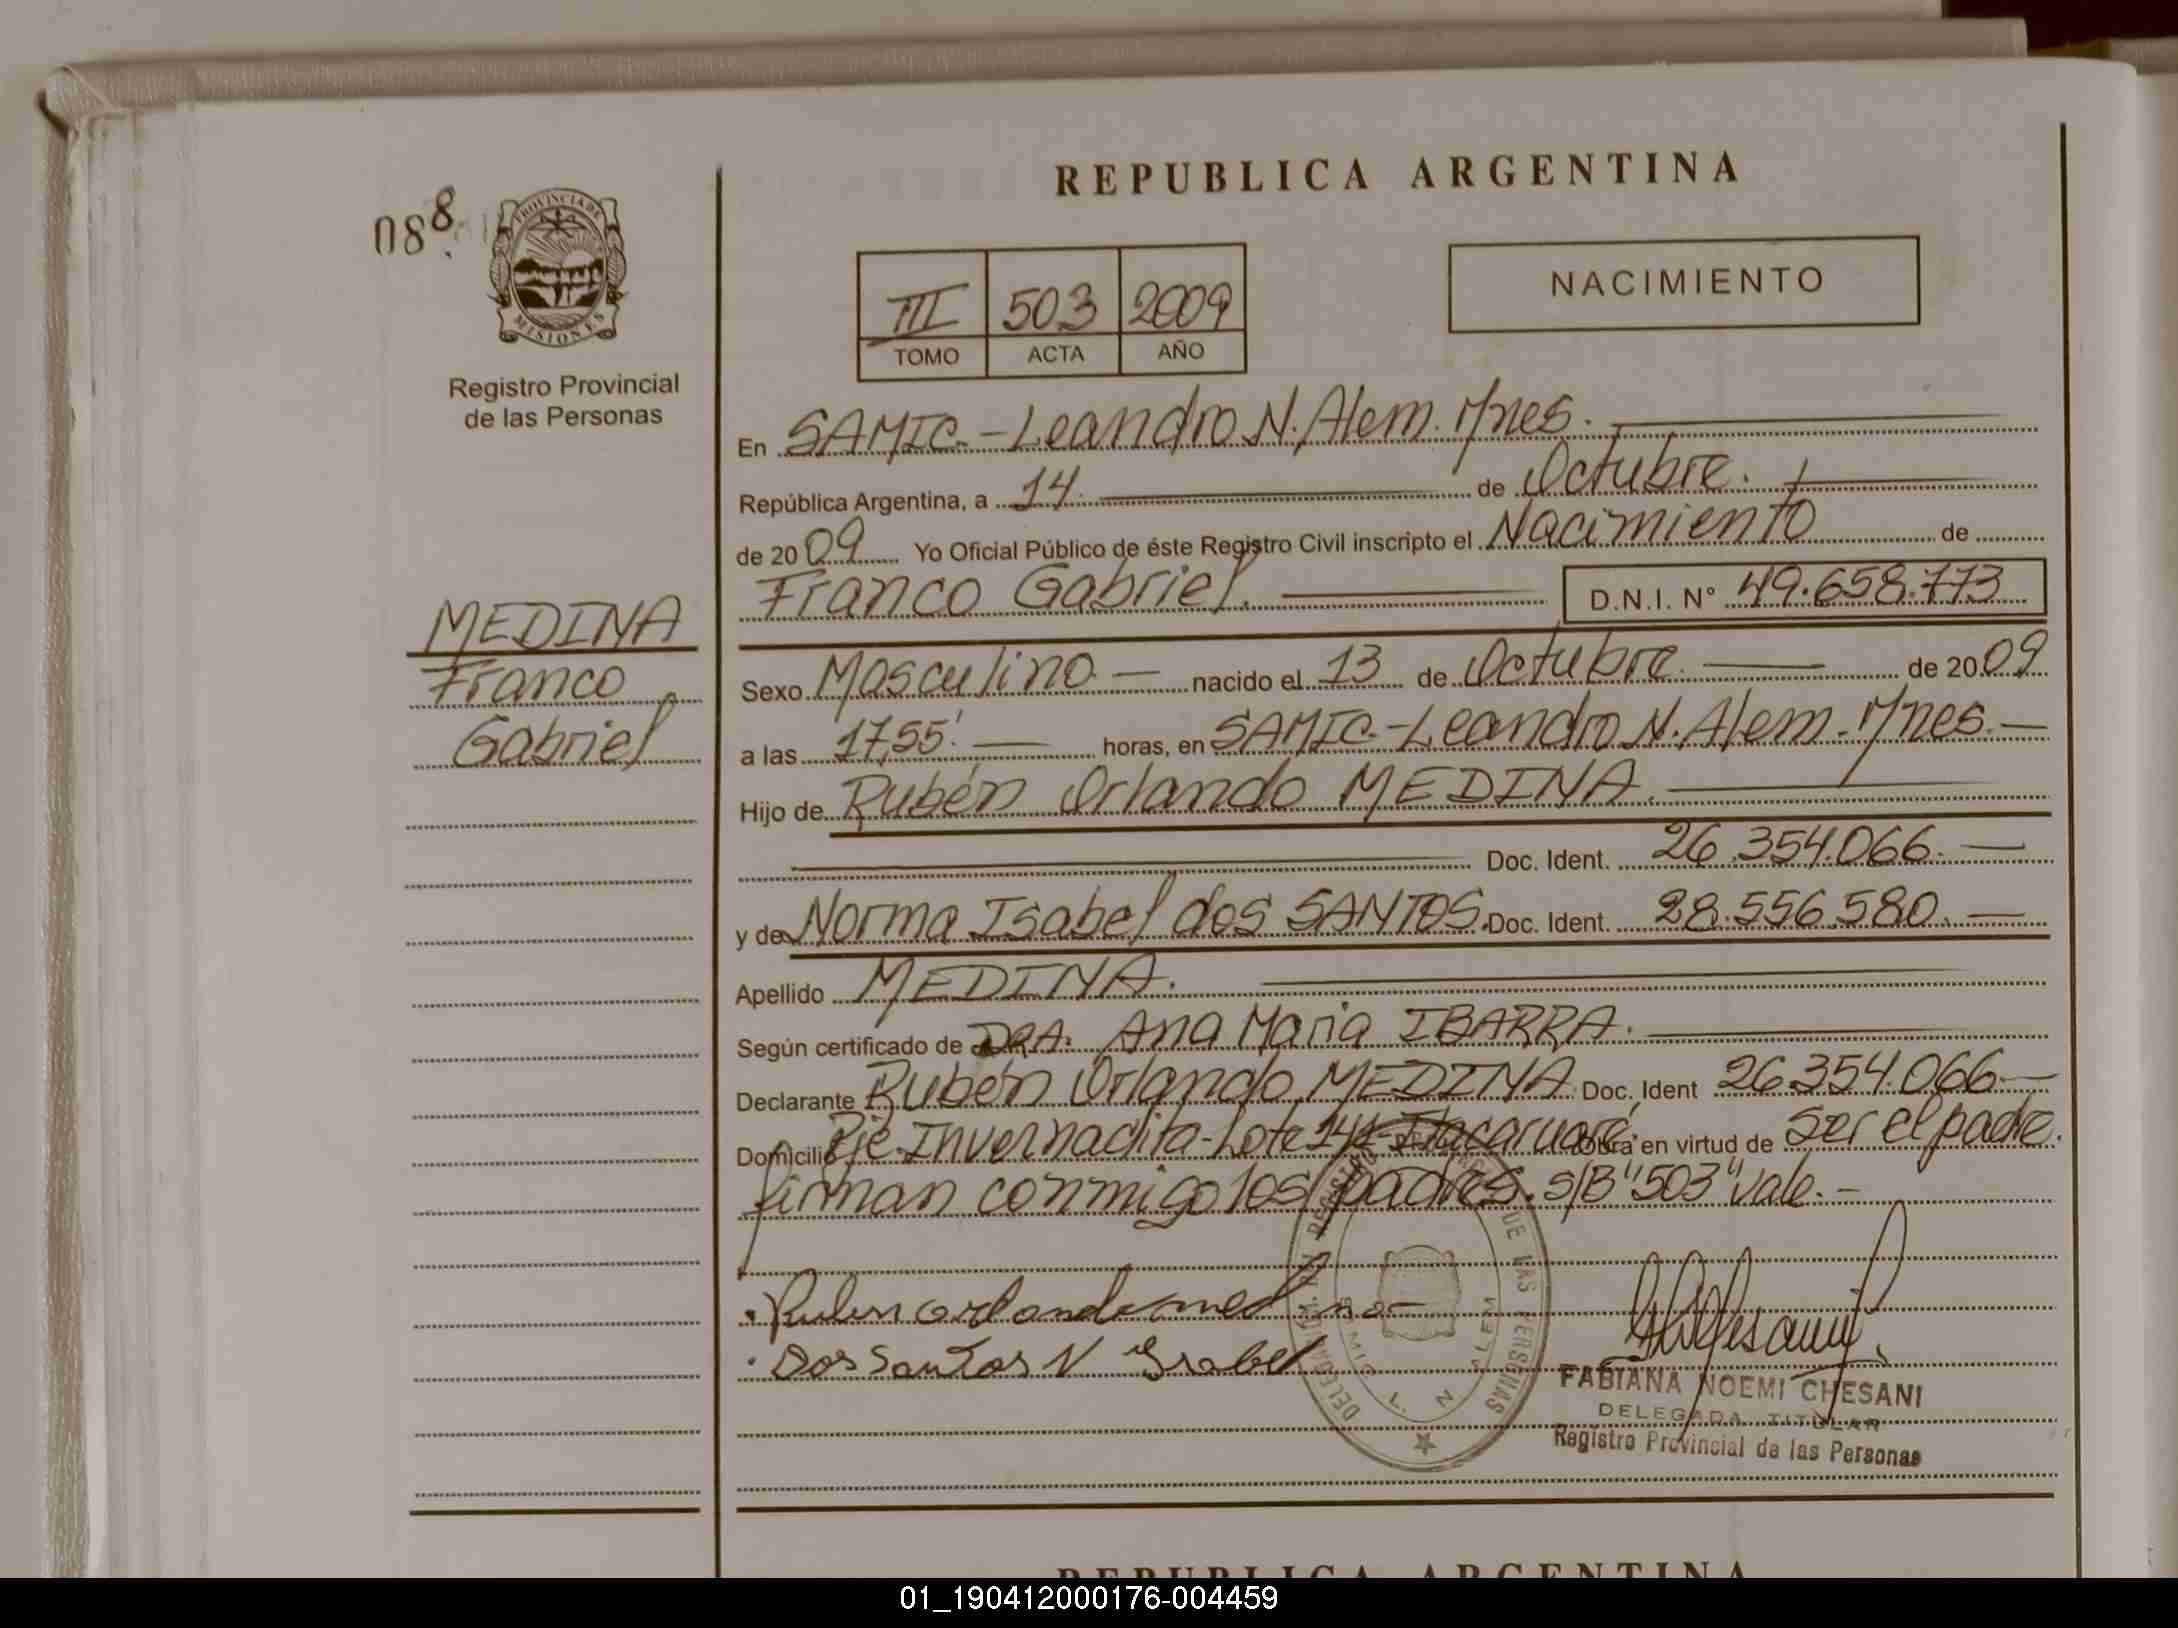 REPUBLICA ARGENTINA
088
PROVINCIA DE
MISIONES
Registro Provincial
de las Personas
III 503 2009
TOMO ACTA AÑO
NACIMIENTO
En SAMIC.-Leandro N. Alem. Mnes.
República Argentina, a 14. de Octubre.
de 2009 Yo Oficial Público de éste Registro Civil inscripto el Nacimiento de
Franco Gabriel. D.N.I. N° 49.658.773
MEDINA
Franco
Gabriel
Sexo Masculino. nacido el 13 de Octubre. de 2009
a las 17,55'. horas, en SAMIC.-Leandro N. Alem.-Mnes.-
Hijo de Rubén Orlando MEDINA.
Doc. Ident. 26.354.066.-
y de Norma Isabel dos SANTOS. Doc. Ident. 28.556.580.-
Apellido MEDINA.
Según certificado de DRA. Ana Maria IBARRA.
Declarante Rubén Orlando MEDINA Doc. Ident 26.354.066.-
Domicilio Pje. Invernadita-Lote 141-Itacaruaré. Obra en virtud de ser el padre.
firman conmigo los padres. s/B "503" vale.-
Ruben orlando medina
Dos Santos N Isabel
DE LAS PERSONAS
L. N ALEM
FABIANA NOEMI CHESANI
DELEGADA TITULAR
Registro Provincial de las Personas
REPUBLICA ARGENTINA
01_190412000176-004459